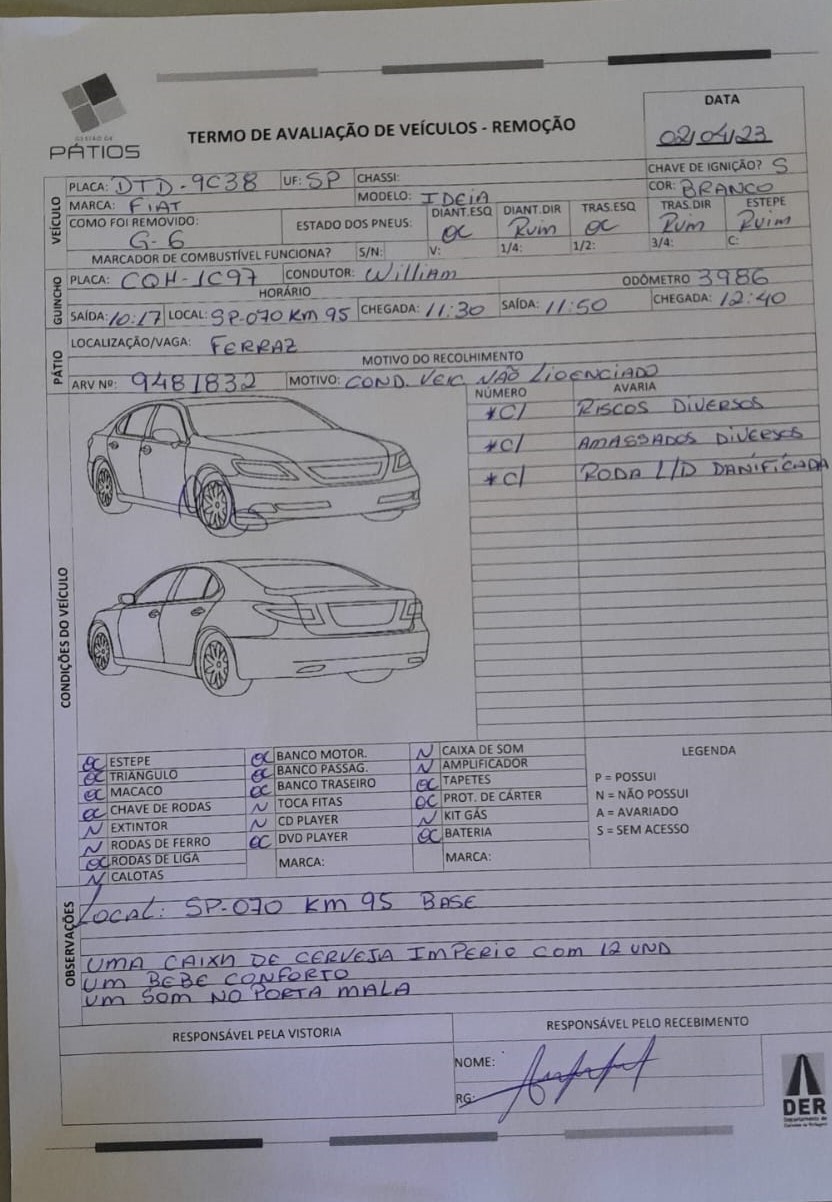 DATA
GESTÃO DE
PÁTIOS
TERMO DE AVALIAÇÃO DE VEÍCULOS - REMOÇÃO
02/04/23
VEÍCULO
PLACA: DTD-9C38 UF: SP CHASSI: CHAVE DE IGNIÇÃO? S
MARCA: FIAT MODELO: IDEIA COR: BRANCO
COMO FOI REMOVIDO: G-6 ESTADO DOS PNEUS: DIANT.ESQ OC DIANT.DIR Ruim TRAS.ESQ OC TRAS.DIR Ruim ESTEPE Ruim
MARCADOR DE COMBUSTÍVEL FUNCIONA? S/N: V: 1/4: 1/2: 3/4: C:
GUINCHO
PLACA: CQH-1C97 CONDUTOR: William ODÔMETRO 3986
HORÁRIO
SAÍDA: 10:17 LOCAL: SP-070 Km 95 CHEGADA: 11:30 SAÍDA: 11:50 CHEGADA: 12:40
PÁTIO
LOCALIZAÇÃO/VAGA: FERRAZ
MOTIVO DO RECOLHIMENTO
ARV Nº: 9481832 MOTIVO: COND. VEIC NÃO LIOENCIADO
CONDIÇÕES DO VEÍCULO
NÚMERO AVARIA
*C/ RISCOS DIVERSOS
*C/ AMASSADOS DIVERSOS
*C/ RODA L/D DANIFICADA
OC ESTEPE OC BANCO MOTOR. N CAIXA DE SOM LEGENDA
OC TRIÂNGULO OC BANCO PASSAG. N AMPLIFICADOR
OC MACACO OC BANCO TRASEIRO OC TAPETES P = POSSUI
OC CHAVE DE RODAS N TOCA FITAS OC PROT. DE CÁRTER N = NÃO POSSUI
N EXTINTOR N CD PLAYER N KIT GÁS A = AVARIADO
N RODAS DE FERRO OC DVD PLAYER OC BATERIA S = SEM ACESSO
OC RODAS DE LIGA MARCA: MARCA:
N CALOTAS
OBSERVAÇÕES
LOCAL: SP-070 Km 95 BASE
UMA CAIXA DE CERVEJA IMPERIO COM 12 UND
UM BEBE CONFORTO
UM SOM NO PORTA MALA
RESPONSÁVEL PELA VISTORIA RESPONSÁVEL PELO RECEBIMENTO
NOME:
RG:
DER